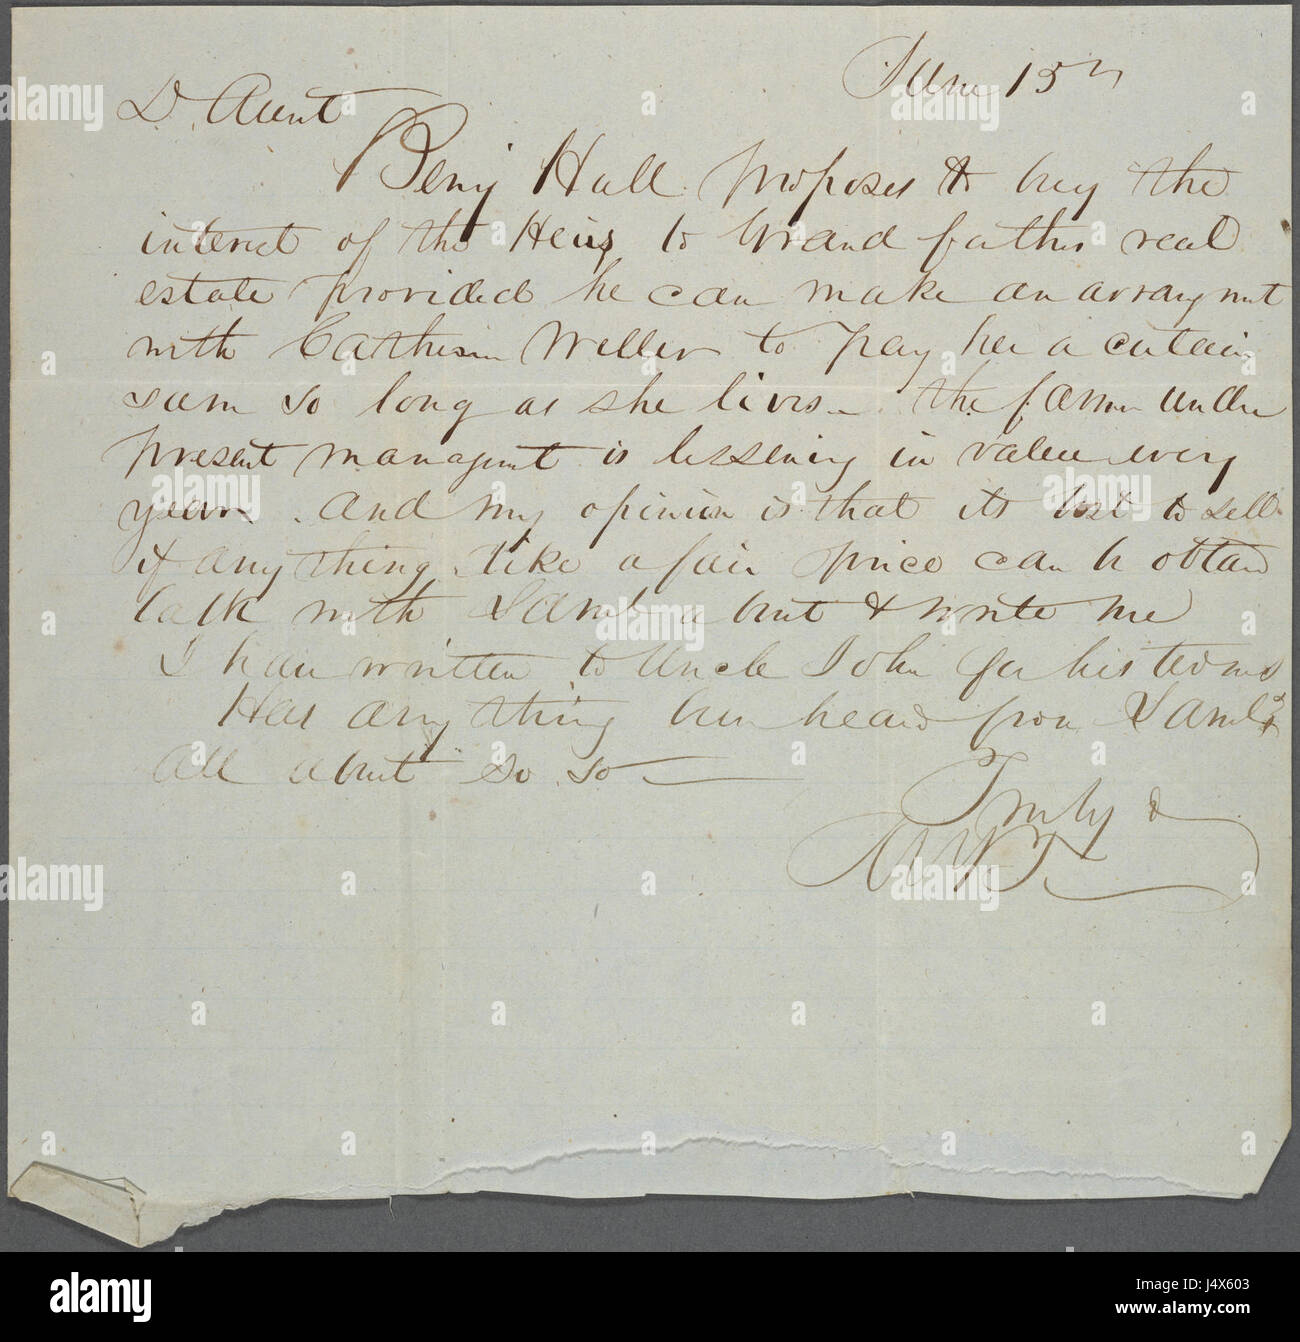 June 15th
D. Aunt
Benj Hall proposes to buy the
interest of the Heirs to Grand fathers real
estate provided he can make an arrangmt
with Catharin Weller to pay her a certain
sum so long as she lives. The farm under
present managemt is lessening in value every
year. And my opinion is that its best to sell
if anything like a fair price can be obtand
talk with Saml about & write me
I have written to Uncle John for his terms
Has any thing been heard from Saml
all about so so
Truly &
alamy stock photo
J4X603